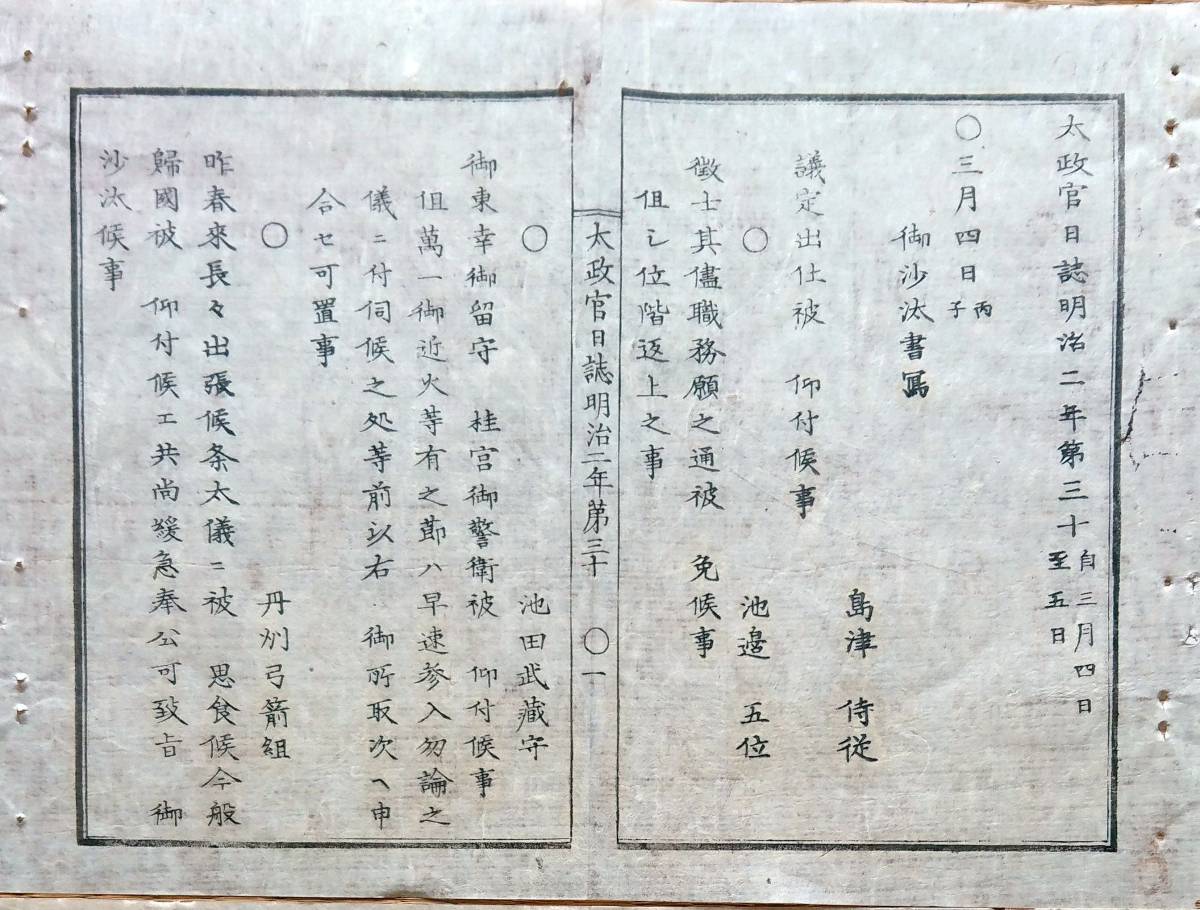 太政官日誌明治二年第三十 自三月四日 至五日
〇三月四日 丙子
御沙汰書寫
島津 侍従
議定出仕被 仰付候事
〇 池邉 五位
徴士其儘職務願之通被 免候事
但シ位階返上之事
太政官日誌明治二年第三十 〇一
〇 池田武藏守
御東幸御留守 桂宮御警衛被 仰付候事
但萬一御近火等有之節ハ早速参入勿論之
儀ニ付伺候之処等前以右 御所取次ヘ申
合セ可置事
〇 丹州弓箭組
昨春来長々出張候条太儀ニ被 思食候今般
歸國被 仰付候エ共尚緩急奉公可致旨 御
沙汰候事